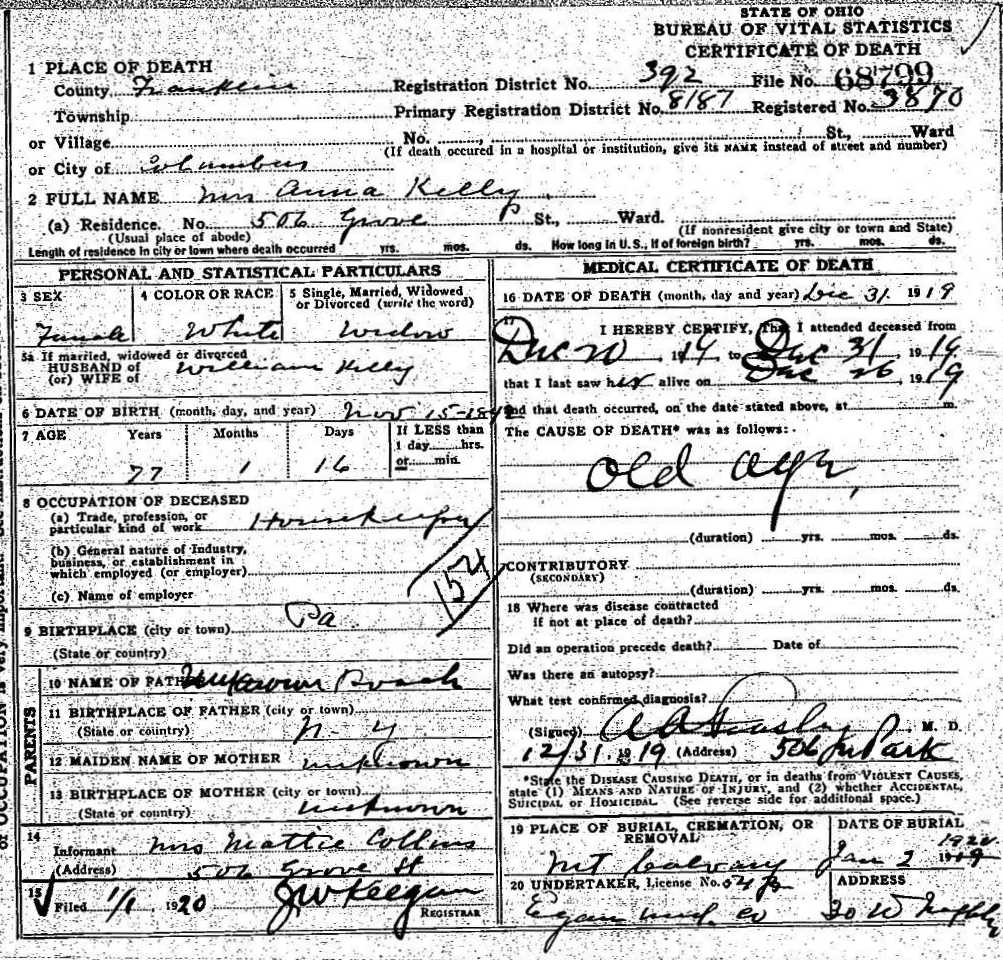 STATE OF OHIO
BUREAU OF VITAL STATISTICS
CERTIFICATE OF DEATH
1 PLACE OF DEATH
County Franklin Registration District No. 392 File No. 68799
Township Primary Registration District No. 8187 Registered No. 3870
or Village No. , St., Ward
(If death occured in a hospital or institution, give its NAME instead of street and number)
or City of Columbus
2 FULL NAME Mrs Anna Kelly
(a) Residence. No. 506 Grove St., Ward.
(Usual place of abode) (If nonresident give city or town and State)
Length of residence in city or town where death occurred yrs. mos. ds. How long in U. S., if of foreign birth? yrs. mos. ds.
PERSONAL AND STATISTICAL PARTICULARS
3 SEX 4 COLOR OR RACE 5 Single, Married, Widowed
or Divorced (write the word)
Female White Widow
5a If married, widowed or divorced
HUSBAND of
(or) WIFE of William Kelly
6 DATE OF BIRTH (month, day, and year) Nov 15-1842
7 AGE Years Months Days If LESS than
1 day hrs.
or min.
77 1 16
8 OCCUPATION OF DECEASED
(a) Trade, profession, or
particular kind of work Housekeeper
(b) General nature of Industry,
business, or establishment in
which employed (or employer)
(c) Name of employer
154
9 BIRTHPLACE (city or town) Pa
(State or country)
PARENTS
10 NAME OF FATHER Unknown Roach
11 BIRTHPLACE OF FATHER (city or town)
(State or country) N-Y
12 MAIDEN NAME OF MOTHER unknown
13 BIRTHPLACE OF MOTHER (city or town)
(State or country) unknown
14
Informant Mrs Mattie Collins
(Address) 506 Grove St
15
Filed 1/1, 1920 J W Keegan
REGISTRAR
MEDICAL CERTIFICATE OF DEATH
16 DATE OF DEATH (month, day and year) Dec 31 1919
17
I HEREBY CERTIFY, That I attended deceased from
Dec 20, 1919 to Dec 31, 1919.
that I last saw her alive on Dec 26, 1919
and that death occurred, on the date stated above, at m
The CAUSE OF DEATH* was as follows:
Old age,
(duration) yrs. mos. ds.
CONTRIBUTORY
(SECONDARY)
(duration) yrs. mos. ds.
18 Where was disease contracted
if not at place of death?
Did an operation precede death? Date of
Was there an autopsy?
What test confirmed diagnosis?
(Signed) M. D.
12/31 1919 (Address) 506 Park
*State the DISEASE CAUSING DEATH, or in deaths from VIOLENT CAUSES,
state (1) MEANS AND NATURE OF INJURY, and (2) whether ACCIDENTAL,
SUICIDAL or HOMICIDAL (See reverse side for additional space.)
19 PLACE OF BURIAL, CREMATION, OR
REMOVAL
DATE OF BURIAL
Mt Calvary Jan 2 1920
20 UNDERTAKER, License No.
ADDRESS
Egan und. co 30 W